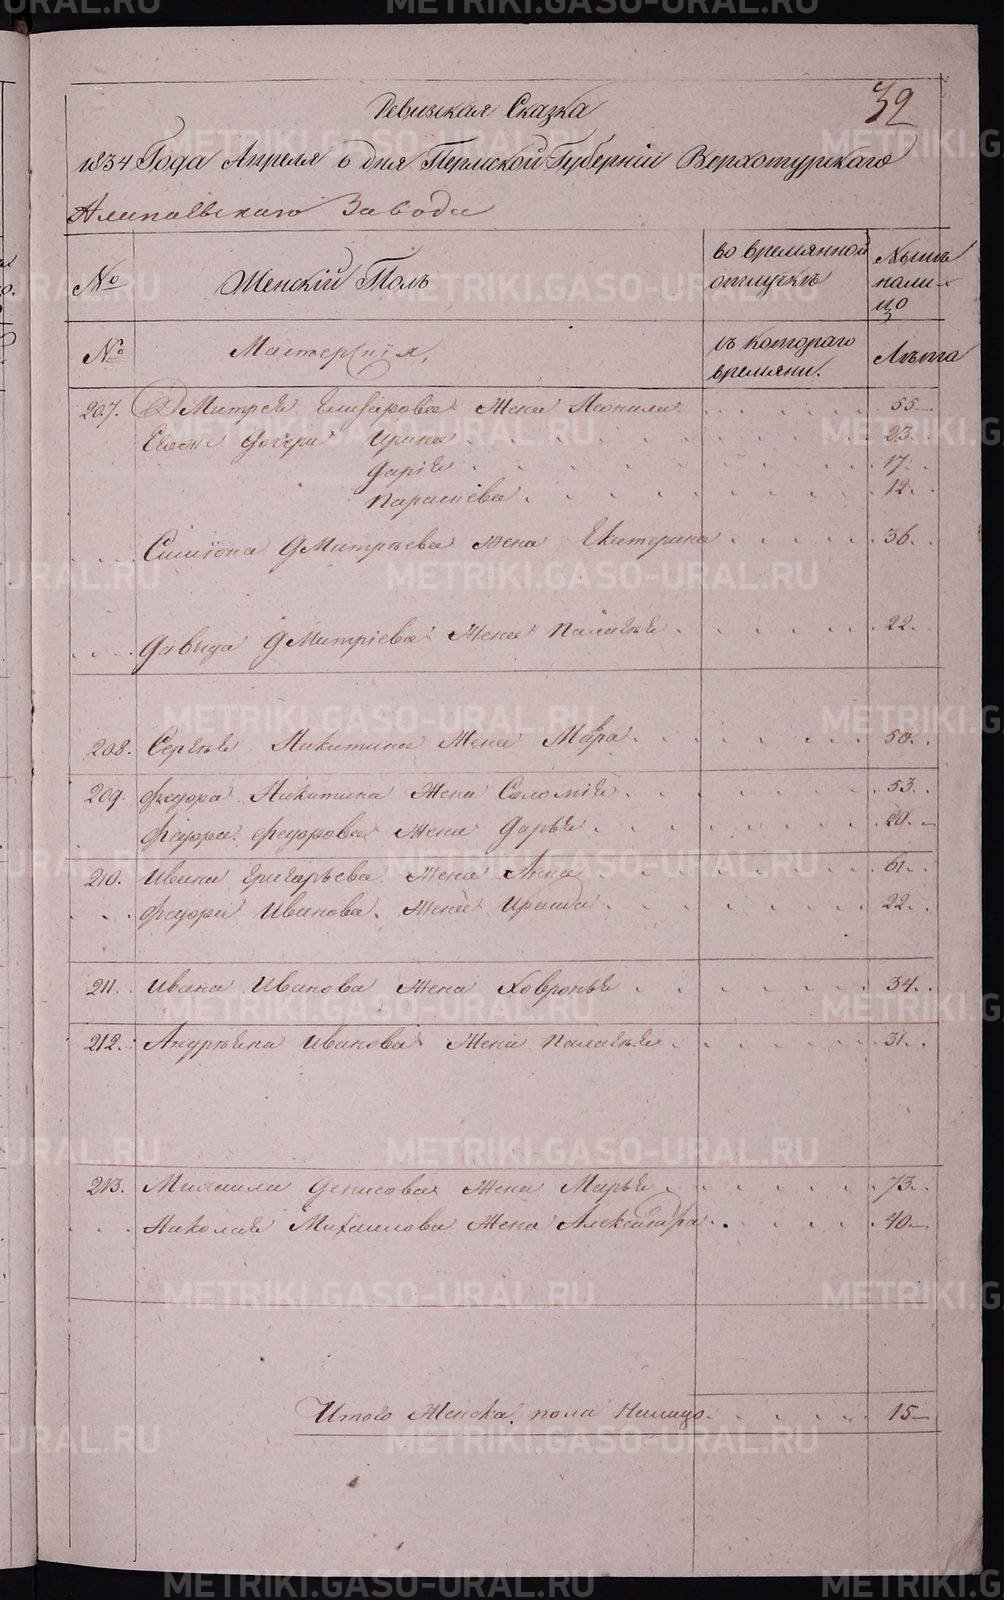 32
Ревизская Сказка
1834 Года Апреля 6 дня Пермской Губернiи Верхотурскаго
Алапаевскаго Завода
№ Женскiй Полъ во времянной отлучкѣ Нынѣ нали-цо
№ Мастерскiя, съ котораго времяни. Лѣта
207. Дмитрея Елизарова Жена Неонила 55
Ево дочери Ирина 23.
Дарiя 17.
Парасковья 12.
Симiона Дмитрѣева жена Екатерина 36.
Давыда Дмитрiева Жена Палагѣя 22.
208. Сергѣя Никитина Жена Мавра 50.
209. Федора Никитина Жена Соломiя 53.
Федора Федорова жена Дарья 20.
210. Ивана Григорьева Жена Анна 61.
Федора Иванова Жена Ираида 22.
211. Ивана Иванова Жена Ховронья 34.
212. Андреяна Иванова Жена Палагѣя 31.
213. Михаила Денисова Жена Марья 73.
Николая Михаилова Жена Александра 40
Итого Женска пола Налицо 15
METRIKI.GASO-URAL.RU